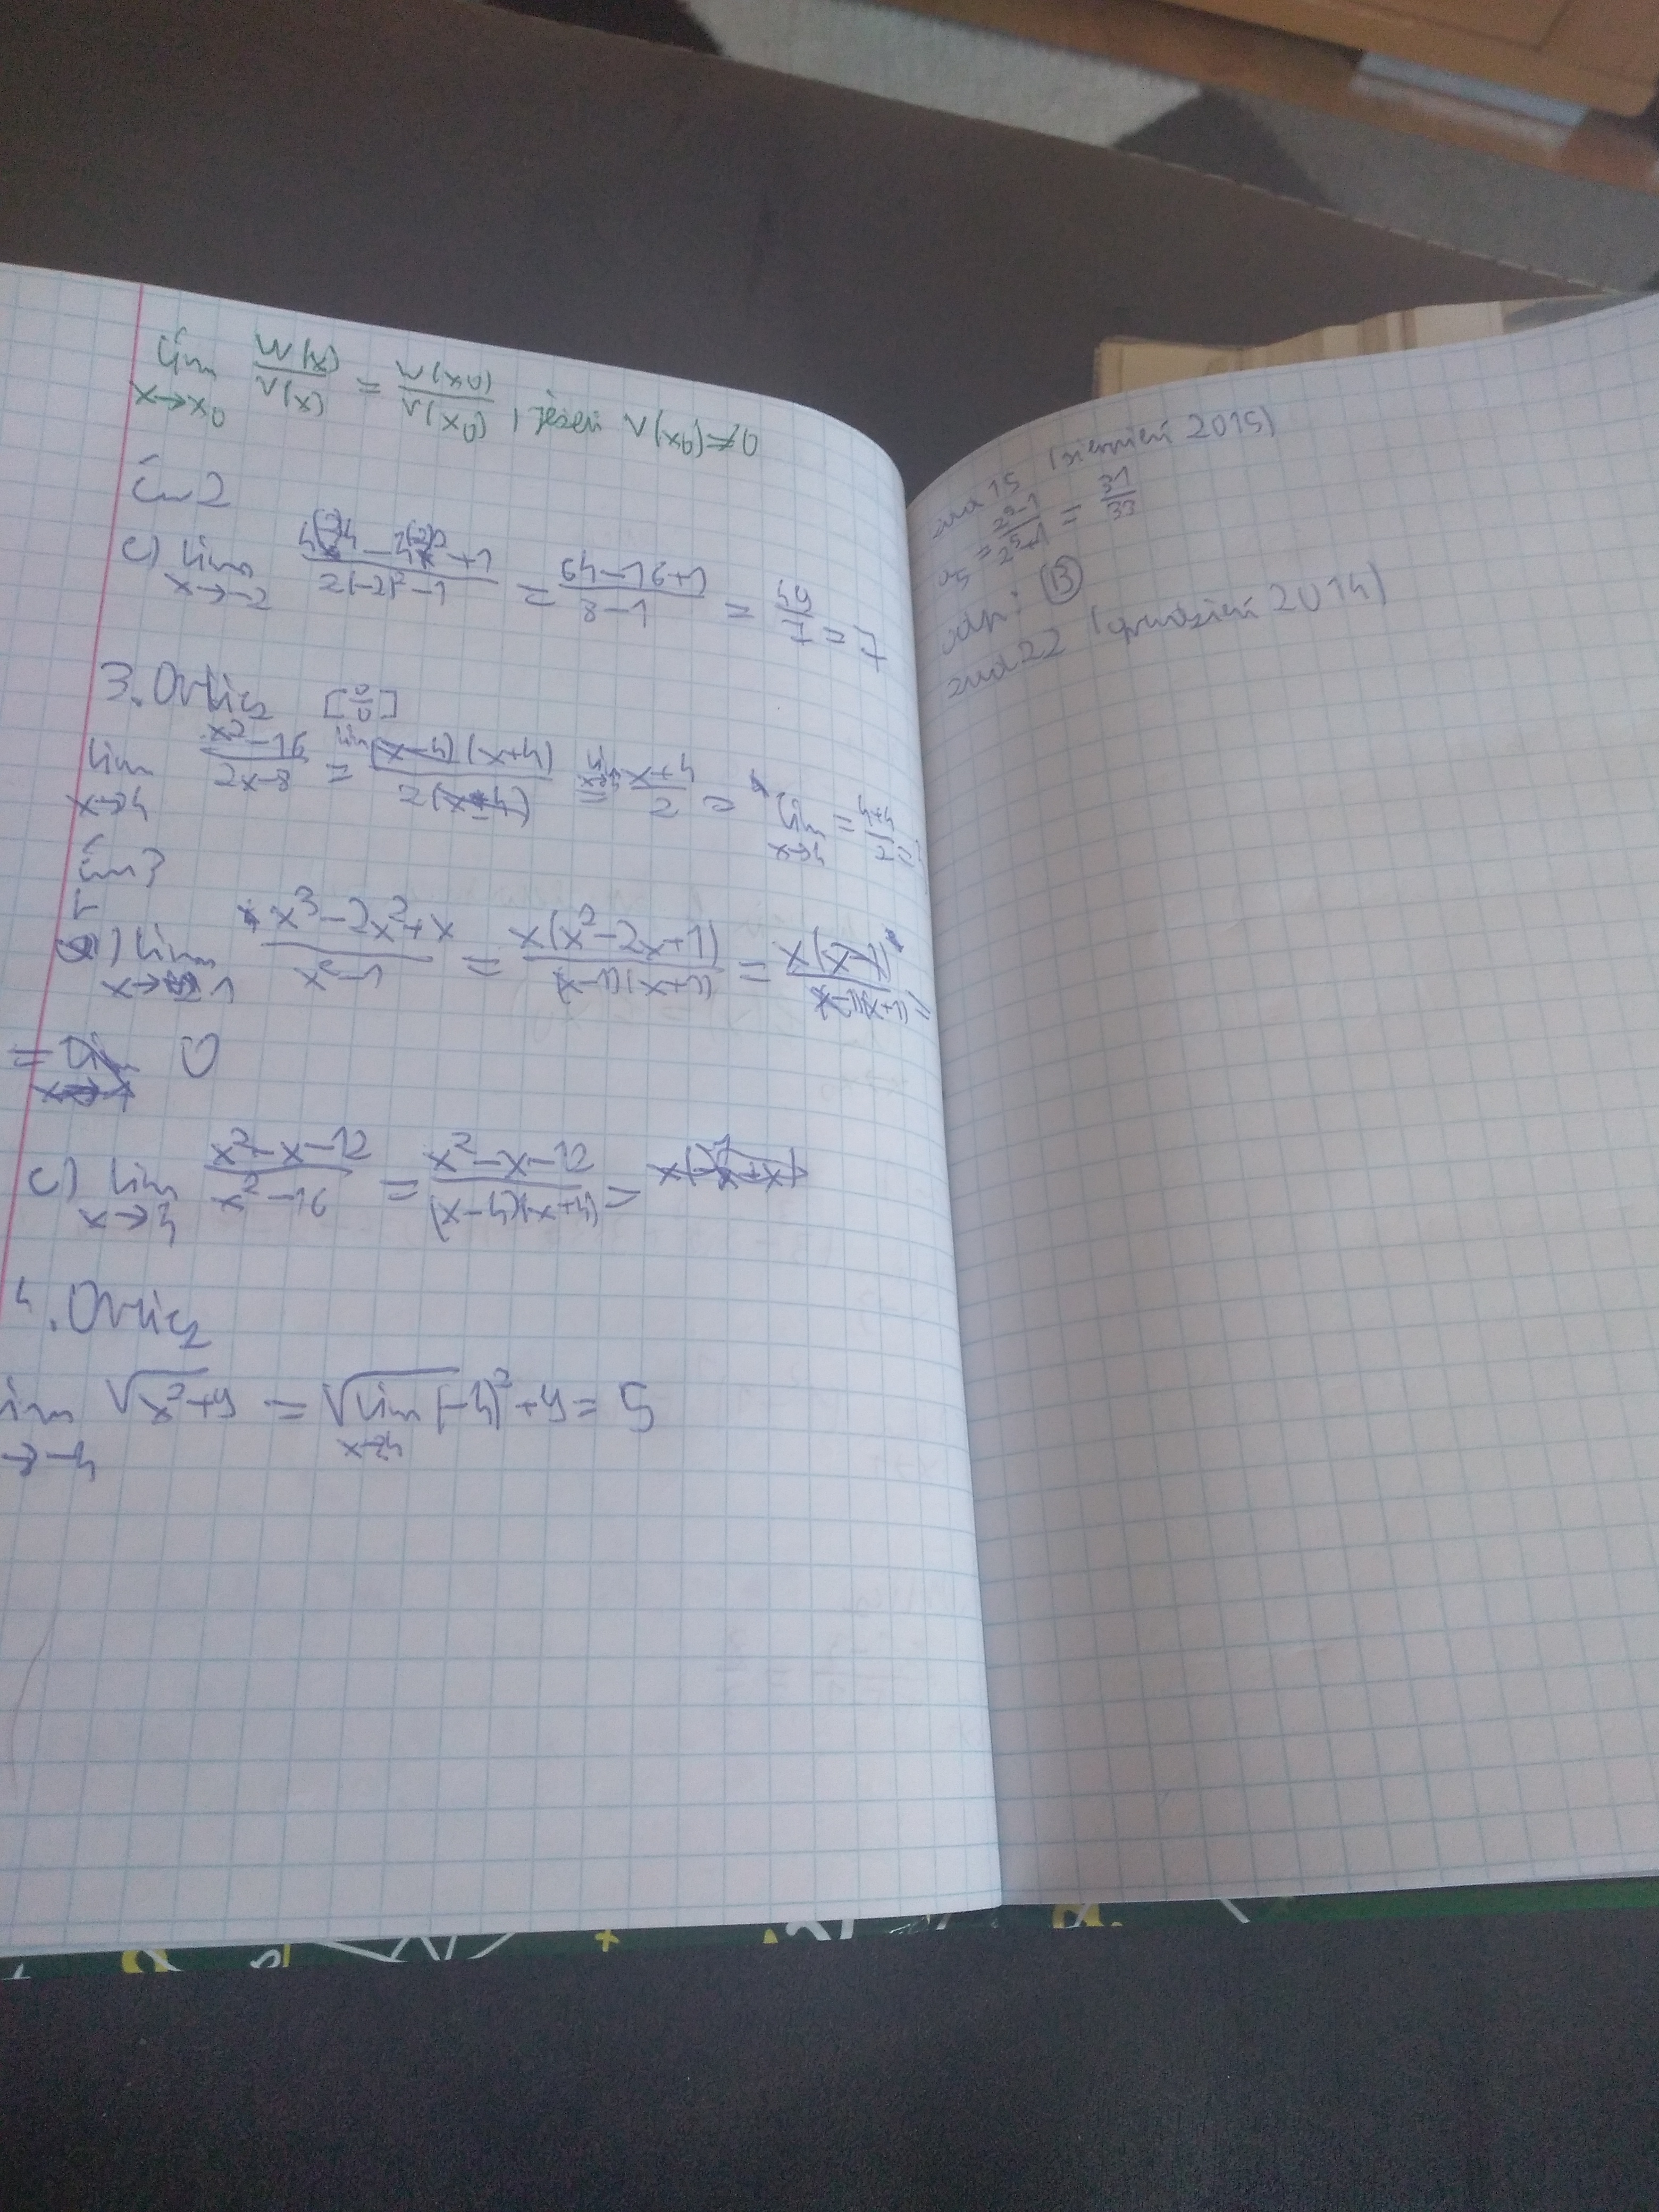 lim x→x₀ W(x)/V(x) = W(x₀)/V(x₀), jeżeli V(x₀)≠0
Ćw 2
c) lim x→-2 4(-2)⁴-4(-2)²+1 / 2(-2)²-1 = 64-16+1 / 8-1 = 49/7 = 7
3. Oblicz [0/0]
lim x→4 x²-16 / 2x-8 = lim (x-4)(x+4) / 2(x-4) = lim x→4 x+4 / 2 = lim x→4 = 4+4 / 2 =
Ćw 3
b) lim x→1 x³-2x²+x / x²-1 = x(x²-2x+1) / (x-1)(x+1) = x(x-1) / (x-1)(x+1) =
= 0
c) lim x→4 x²-x-12 / x²-16 = x²-x-12 / (x-4)(x+4) =
4. Oblicz
lim →-4 √x²+9 = √lim x→-4 (-4)²+9 = 5
zad 15 (sierpień 2015)
a₅ = 2⁵-1 / 2⁵+1 = 31/33
odp: B
zad 22 (grudzień 2014)